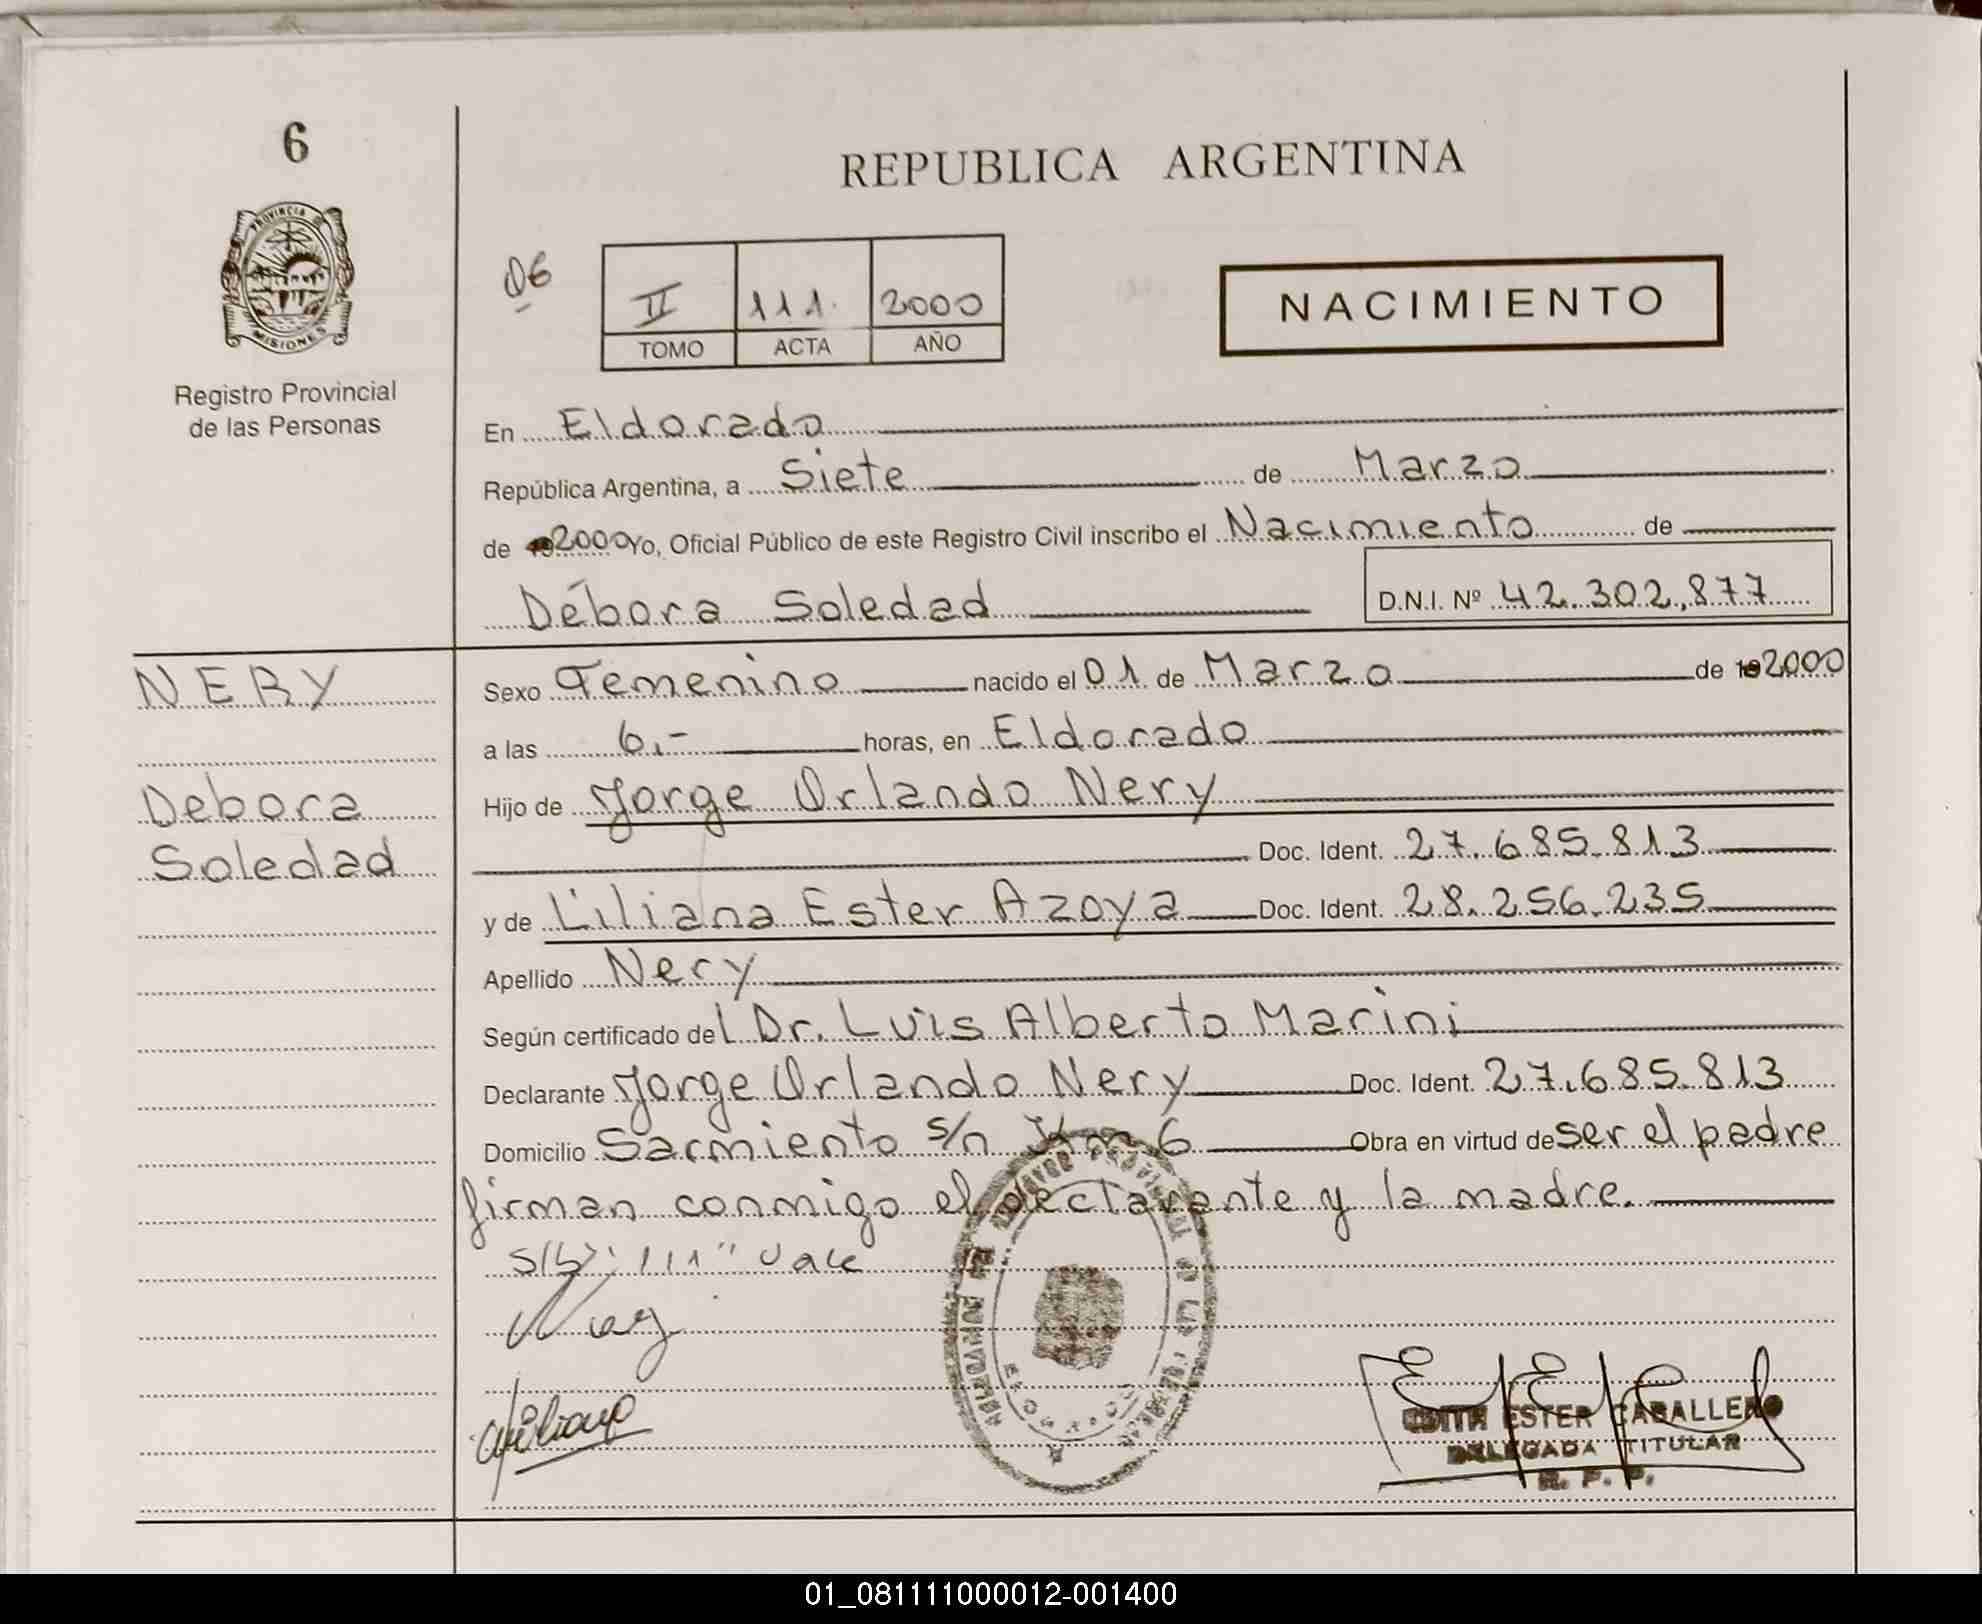 6
REPUBLICA ARGENTINA
PROVINCIA DE
MISIONES
06
II 111. 2000
TOMO ACTA AÑO
NACIMIENTO
Registro Provincial
de las Personas
En Eldorado
República Argentina, a Siete de Marzo
de 2000 Yo, Oficial Público de este Registro Civil inscribo el Nacimiento de
Débora Soledad D.N.I. Nº 42.302.877
NERY
Debora
Soledad
Sexo Femenino nacido el 01 de Marzo de 19 2000
a las 6.- horas, en Eldorado
Hijo de Jorge Orlando Nery
Doc. Ident. 27.685.813
y de Liliana Ester Azoya Doc. Ident. 28.256.235
Apellido Nery
Según certificado del Dr. Luis Alberto Marini
Declarante Jorge Orlando Nery Doc. Ident. 27.685.813
Domicilio Sarmiento s/n Km 6 Obra en virtud de ser el padre
firman conmigo el declarante y la madre.
S/b: 111" Vale
Nery
Liliana
EDITH ESTER CABALLERO
DELEGADA TITULAR
R. P. P.
01_081111000012-001400